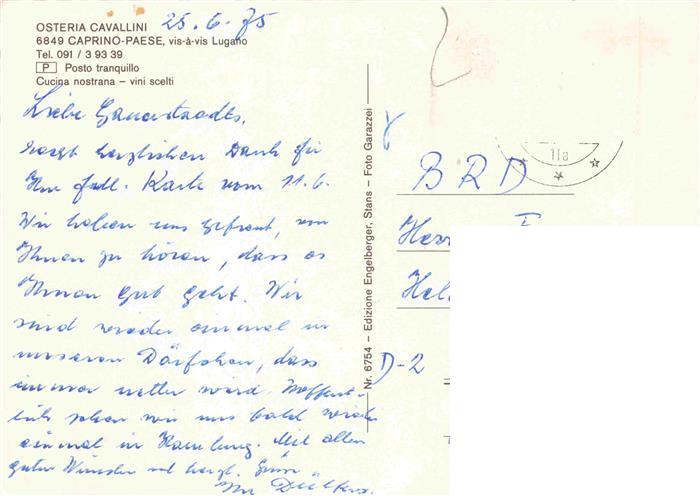 OSTERIA CAVALLINI 25.6.75
6849 CAPRINO-PAESE, vis-à-vis Lugano
Tel. 091 / 3 93 39
P Posto tranquillo
Cucina nostrana – vini scelti
Liebe
recht herzlichen Dank für
Ihre frdl. Karte vom 11.6.
Wir haben uns gefreut, von
Ihnen zu hören, dass es
Ihnen gut geht. Wir
sind wieder einmal in
unserem Dörfchen, dass
immer netter wird. Hoffent-
lich sehen wir uns bald wieder
einmal in Hamburg. Mit allen
guten Wünschen und herzl. Grüsse
Ihre
Nr. 6754 – Edizione Engelberger, Stans – Foto Garazzei
11a
BRD
Herr
D-2